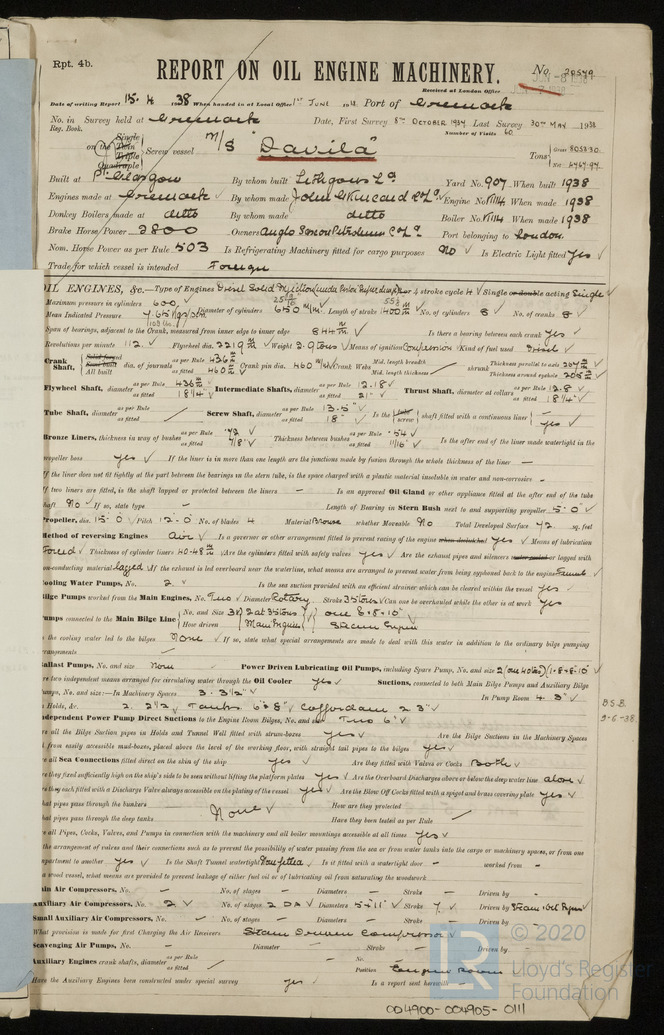 Rpt. 4b.
REPORT ON OIL ENGINE MACHINERY.
No. 20549
Received at London Office
Date of writing Report 15. 4 1938 When handed in at Local Office 1st June 1938 Port of Greenock
No. in Survey held at Greenock Date, First Survey 8th October 1937 Last Survey 30th May 1938
Reg. Book. Number of Visits 60
on the Single Twin Triple Quadruple Screw vessel M/S "Davila" Tons Gross 8053.30 Net 4764.94
Built at Pt. Glasgow By whom built Lithgows Ld Yard No. 907 When built 1938
Engines made at Greenock By whom made John G Kincaid & Co Ld Engine No. When made 1938
Donkey Boilers made at ditto By whom made ditto Boiler No. When made 1938
Brake Horse Power 2800 Owners Anglo Saxon Petroleum Co Ld Port belonging to London
Nom. Horse Power as per Rule 503 Is Refrigerating Machinery fitted for cargo purposes No Is Electric Light fitted Yes
Trade for which vessel is intended Foreign
OIL ENGINES, &c.—Type of Engines Diesel Solid Injection 2 or 4 stroke cycle 4 Single or double acting Single
Maximum pressure in cylinders 600 Diameter of cylinders 650 m/m Length of stroke 1400 m/m No. of cylinders 8 No. of cranks 8
Mean Indicated Pressure
Span of bearings, adjacent to the Crank, measured from inner edge to inner edge 844 m/m Is there a bearing between each crank yes
Revolutions per minute 112 Flywheel dia. 2219 m/m Weight Means of ignition Compression Kind of fuel used Diesel
Crank Shaft, Solid forged Semi built All built dia. of journals as per Rule 436 m/m as fitted 460 m/m Crank pin dia. 460 m/m Crank Webs Mid. length breadth Mid. length thickness shrunk Thickness parallel to axis 267 m/m Thickness around eyehole 205 m/m
Flywheel Shaft, diameter as per Rule 436 m/m as fitted 18 1/4" Intermediate Shafts, diameter as per Rule 12.18 as fitted Thrust Shaft, diameter at collars as per Rule 12.8 as fitted 18 1/4"
Tube Shaft, diameter as per Rule as fitted Screw Shaft, diameter as per Rule 13.5" as fitted 18" Is the tube screw shaft fitted with a continuous liner yes
Bronze Liners, thickness in way of bushes as per Rule .72 as fitted 7/8" Thickness between bushes as per Rule .54 as fitted 11/16" Is the after end of the liner made watertight in the
propeller boss yes If the liner is in more than one length are the junctions made by fusion through the whole length of the liner —
If the liner does not fit tightly at the part between the bearings in the stern tube, is the space charged with a plastic material insoluble in water and non-corrosive -
If two liners are fitted, is the shaft lapped or protected between the liners — Is an approved Oil Gland or other appliance fitted at the after end of the tube
shaft No If so, state type — Length of Bearing in Stern Bush next to and supporting propeller 5'-0"
Propeller, dia. 15'-0" Pitch 12'-0" No. of blades 4 Material Bronze whether Moveable No Total Developed Surface 72 sq. feet
Method of reversing Engines Air Is a governor or other arrangement fitted to prevent racing of the engine when declutched yes Means of lubrication
Forced Thickness of cylinder liners 40-48 m/m Are the cylinders fitted with safety valves yes Are the exhaust pipes and silencers water cooled or lagged with
non-conducting material lagged If the exhaust is led overboard near the waterline, what means are arranged to prevent water from being syphoned back to the engine Funnel
Cooling Water Pumps, No. 2 Is the sea suction provided with an efficient strainer which can be cleared within the vessel yes
Bilge Pumps worked from the Main Engines, No. Two Diameter Rotary Stroke 35 tons Can one be overhauled while the other is at work yes
Pumps connected to the Main Bilge Line No. and Size How driven Main Engine Steam Engine
Is the cooling water led to the bilges None If so, state what special arrangements are made to deal with this water in addition to the ordinary bilge pumping
arrangements —
Ballast Pumps, No. and size None Power Driven Lubricating Oil Pumps, including Spare Pump, No. and size
Are two independent means arranged for circulating water through the Oil Cooler yes Suctions, connected to both Main Bilge Pumps and Auxiliary Bilge
Pumps, No. and size:—In Machinery Spaces 3. 3½" In Pump Room 4 3"
In Holds, &c. 2. 2½ Tanks 6 & 8" Cofferdam 2 3"
Independent Power Pump Direct Suctions to the Engine Room Bilges, No. and size Two 6"
Are all the Bilge Suction pipes in Holds and Tunnel Well fitted with strum-boxes yes Are the Bilge Suctions in the Machinery Spaces
led from easily accessible mud-boxes, placed above the level of the working floor, with straight tail pipes to the bilges yes
B.S.B.
9-6-38
Are all Sea Connections fitted direct on the skin of the ship yes Are they fitted with Valves or Cocks Both
Are they fixed sufficiently high on the ship's side to be seen without lifting the platform plates yes Are the Overboard Discharges above or below the deep water line above
Are they each fitted with a Discharge Valve always accessible on the plating of the vessel yes Are the Blow Off Cocks fitted with a spigot and brass covering plate yes
What pipes pass through the bunkers None How are they protected
What pipes pass through the deep tanks Have they been tested as per Rule
Are all Pipes, Cocks, Valves, and Pumps in connection with the machinery and all boiler mountings accessible at all times yes
Is the arrangement of valves and their connections such as to prevent the possibility of water passing from the sea or from water tanks into the cargo or machinery spaces, or from one
compartment to another yes Is the Shaft Tunnel watertight None fitted Is it fitted with a watertight door - worked from -
If a wood vessel, what means are provided to prevent leakage of either fuel oil or of lubricating oil from saturating the woodwork
Main Air Compressors, No. — No. of stages — Diameters — Stroke — Driven by —
Auxiliary Air Compressors, No. 2 No. of stages 2 Diameters 5 & 11" Stroke 7 Driven by
Small Auxiliary Air Compressors, No. — No. of stages — Diameters — Stroke — Driven by —
What provision is made for first Charging the Air Receivers Steam Driven Compressor
Scavenging Air Pumps, No. — Diameter — Stroke — Driven by
Auxiliary Engines crank shafts, diameter as per Rule as fitted No. Position Engine Room
Have the Auxiliary Engines been constructed under special survey yes Is a report sent herewith
© 2020
Lloyd's Register
Foundation
004900-004905-0111